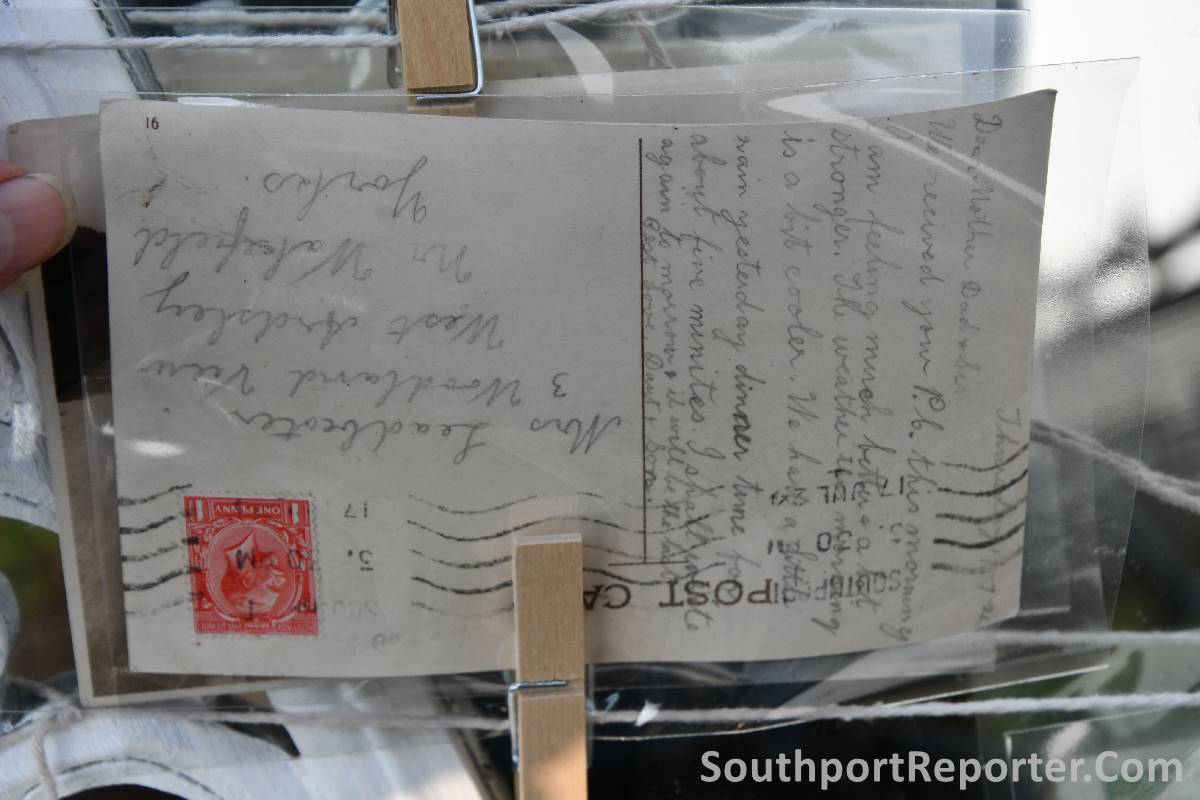 16
POST CA
Thursday
Dear Mother Dad & Sis.
We recived your P.C. this morning
I am feeling much better & a bit
stronger. The weather this morning
is a bit cooler. We had a little
rain yesterday dinner time for
about five minites. I shall write
again to morrow & it will be the last
Best Love Dant &
Mrs Leadbeater
3 Woodland View
West Ardsley
Nr Wakefield
Yorks.
SOUTHPORT
17 JUL
ONE PENNY
SouthportReporter.Com